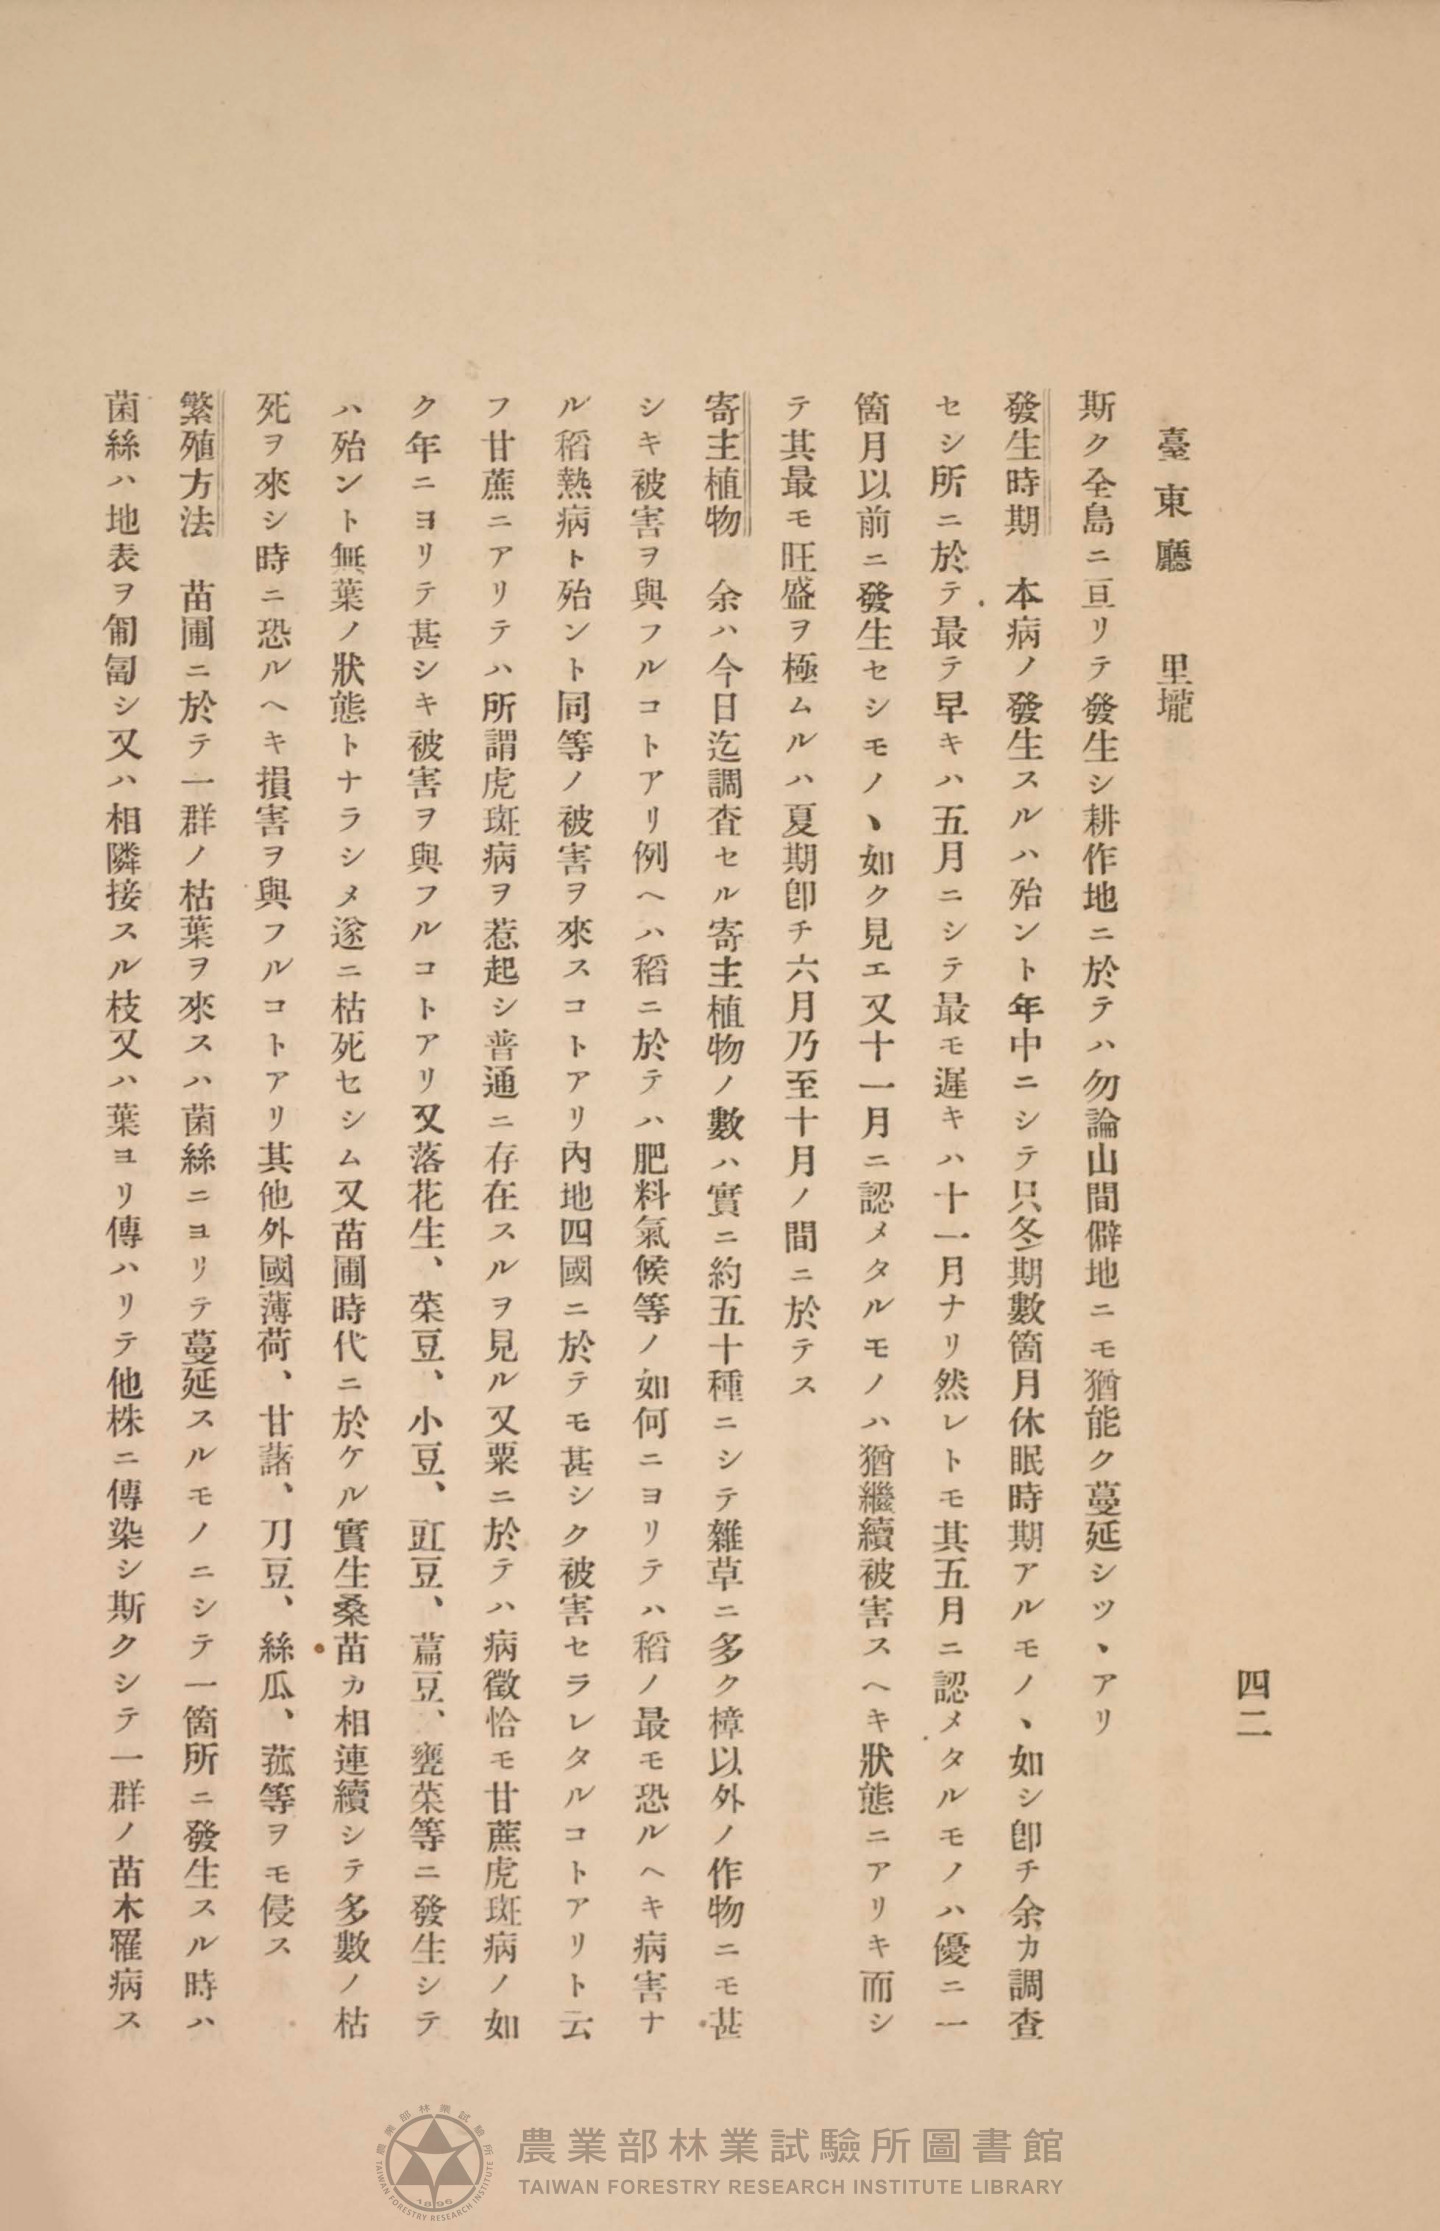 四二
臺東廳　里壠
斯ク全島ニ亘リテ發生シ耕作地ニ於テハ勿論山間僻地ニモ猶能ク蔓延シツヽアリ
發生時期　本病ノ發生スルハ殆ント年中ニシテ只冬期數箇月休眠時期アルモノヽ如シ卽チ余カ調査
セシ所ニ於テ最テ早キハ五月ニシテ最モ遲キハ十一月ナリ然レトモ其五月ニ認メタルモノハ優ニ一
箇月以前ニ發生セシモノヽ如ク見エ又十一月ニ認メタルモノハ猶繼續被害スヘキ狀態ニアリキ而シ
テ其最モ旺盛ヲ極ムルハ夏期卽チ六月乃至十月ノ間ニ於テス
寄主植物　余ハ今日迄調査セル寄主植物ノ數ハ實ニ約五十種ニシテ雜草ニ多ク樟以外ノ作物ニモ甚
シキ被害ヲ與フルコトアリ例ヘハ稻ニ於テハ肥料氣候等ノ如何ニヨリテハ稻ノ最モ恐ルヘキ病害ナ
ル稻熱病ト殆ント同等ノ被害ヲ來スコトアリ內地四國ニ於テモ甚シク被害セラレタルコトアリト云
フ甘蔗ニアリテハ所謂虎斑病ヲ惹起シ普通ニ存在スルヲ見ル又粟ニ於テハ病徵恰モ甘蔗虎斑病ノ如
ク年ニヨリテ甚シキ被害ヲ與フルコトアリ又落花生、菜豆、小豆、豇豆、萹豆、甕菜等ニ發生シテ
ハ殆ント無葉ノ狀態トナラシメ遂ニ枯死セシム又苗圃時代ニ於ケル實生桑苗カ相連續シテ多數ノ枯
死ヲ來シ時ニ恐ルヘキ損害ヲ與フルコトアリ其他外國薄荷、甘藷、刀豆、絲瓜、菰等ヲモ侵ス
繁殖方法　苗圃ニ於テ一群ノ枯葉ヲ來スハ菌絲ニヨリテ蔓延スルモノニシテ一箇所ニ發生スル時ハ
菌絲ハ地表ヲ匍匐シ又ハ相隣接スル枝又ハ葉ヨリ傳ハリテ他株ニ傳染シ斯クシテ一群ノ苗木罹病ス
農業部林業試驗所圖書館
TAIWAN FORESTRY RESEARCH INSTITUTE LIBRARY
農業部林業試驗所
TAIWAN FORESTRY RESEARCH INSTITUTE
1896